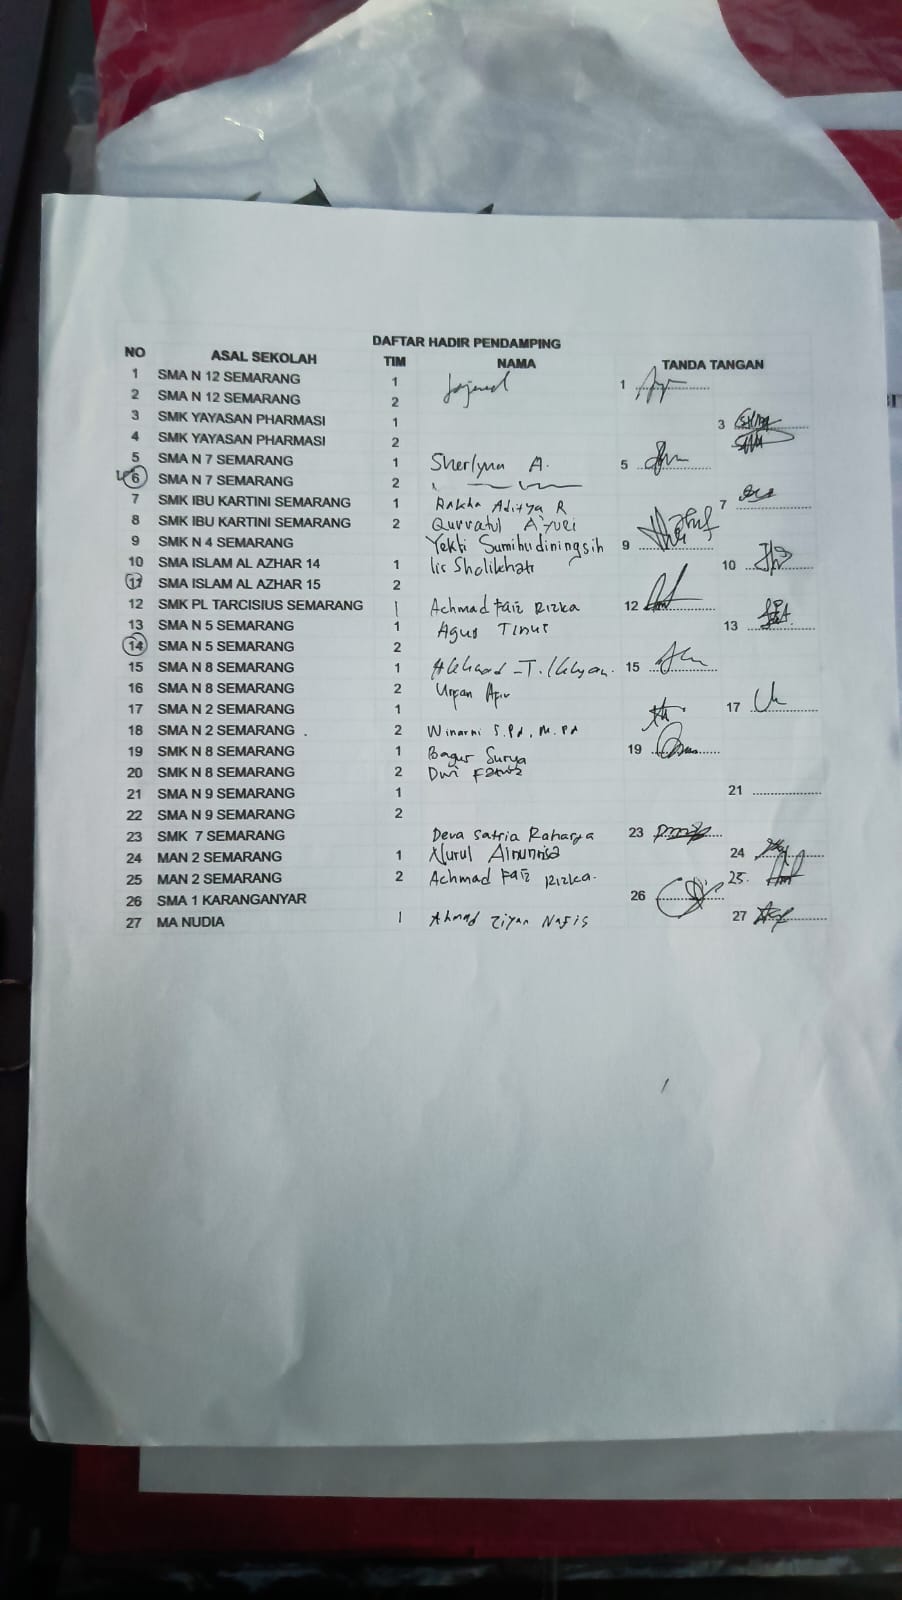 DAFTAR HADIR PENDAMPING
NO ASAL SEKOLAH TIM NAMA TANDA TANGAN
1 SMA N 12 SEMARANG 1 1
2 SMA N 12 SEMARANG 2
3 SMK YAYASAN PHARMASI 1 3
4 SMK YAYASAN PHARMASI 2
5 SMA N 7 SEMARANG 1 Sherlynn A. 5
6 SMA N 7 SEMARANG 2
7 SMK IBU KARTINI SEMARANG 1 Rakha Aditya R 7
8 SMK IBU KARTINI SEMARANG 2 Qurratul A'yuni
9 SMK N 4 SEMARANG Yekti Sumihudiningsih 9
10 SMA ISLAM AL AZHAR 14 1 Iis Sholikhati 10
11 SMA ISLAM AL AZHAR 15 2
12 SMK PL TARCISIUS SEMARANG 1 Achmad Faiz Rizka 12
13 SMA N 5 SEMARANG 1 Agus 13
14 SMA N 5 SEMARANG 2
15 SMA N 8 SEMARANG 1 15
16 SMA N 8 SEMARANG 2
17 SMA N 2 SEMARANG 1 17
18 SMA N 2 SEMARANG 2 Winarni S.Pd, M.Pd
19 SMK N 8 SEMARANG 1 Bagus Surya 19
20 SMK N 8 SEMARANG 2 Dwi
21 SMA N 9 SEMARANG 1 21
22 SMA N 9 SEMARANG 2
23 SMK 7 SEMARANG Deva Satria Raharja 23
24 MAN 2 SEMARANG 1 Nurul Ainunnisa 24
25 MAN 2 SEMARANG 2 Achmad Faiz Rizka. 25.
26 SMA 1 KARANGANYAR 26
27 MA NUDIA 1 Ahmad Ziyan Nafis 27